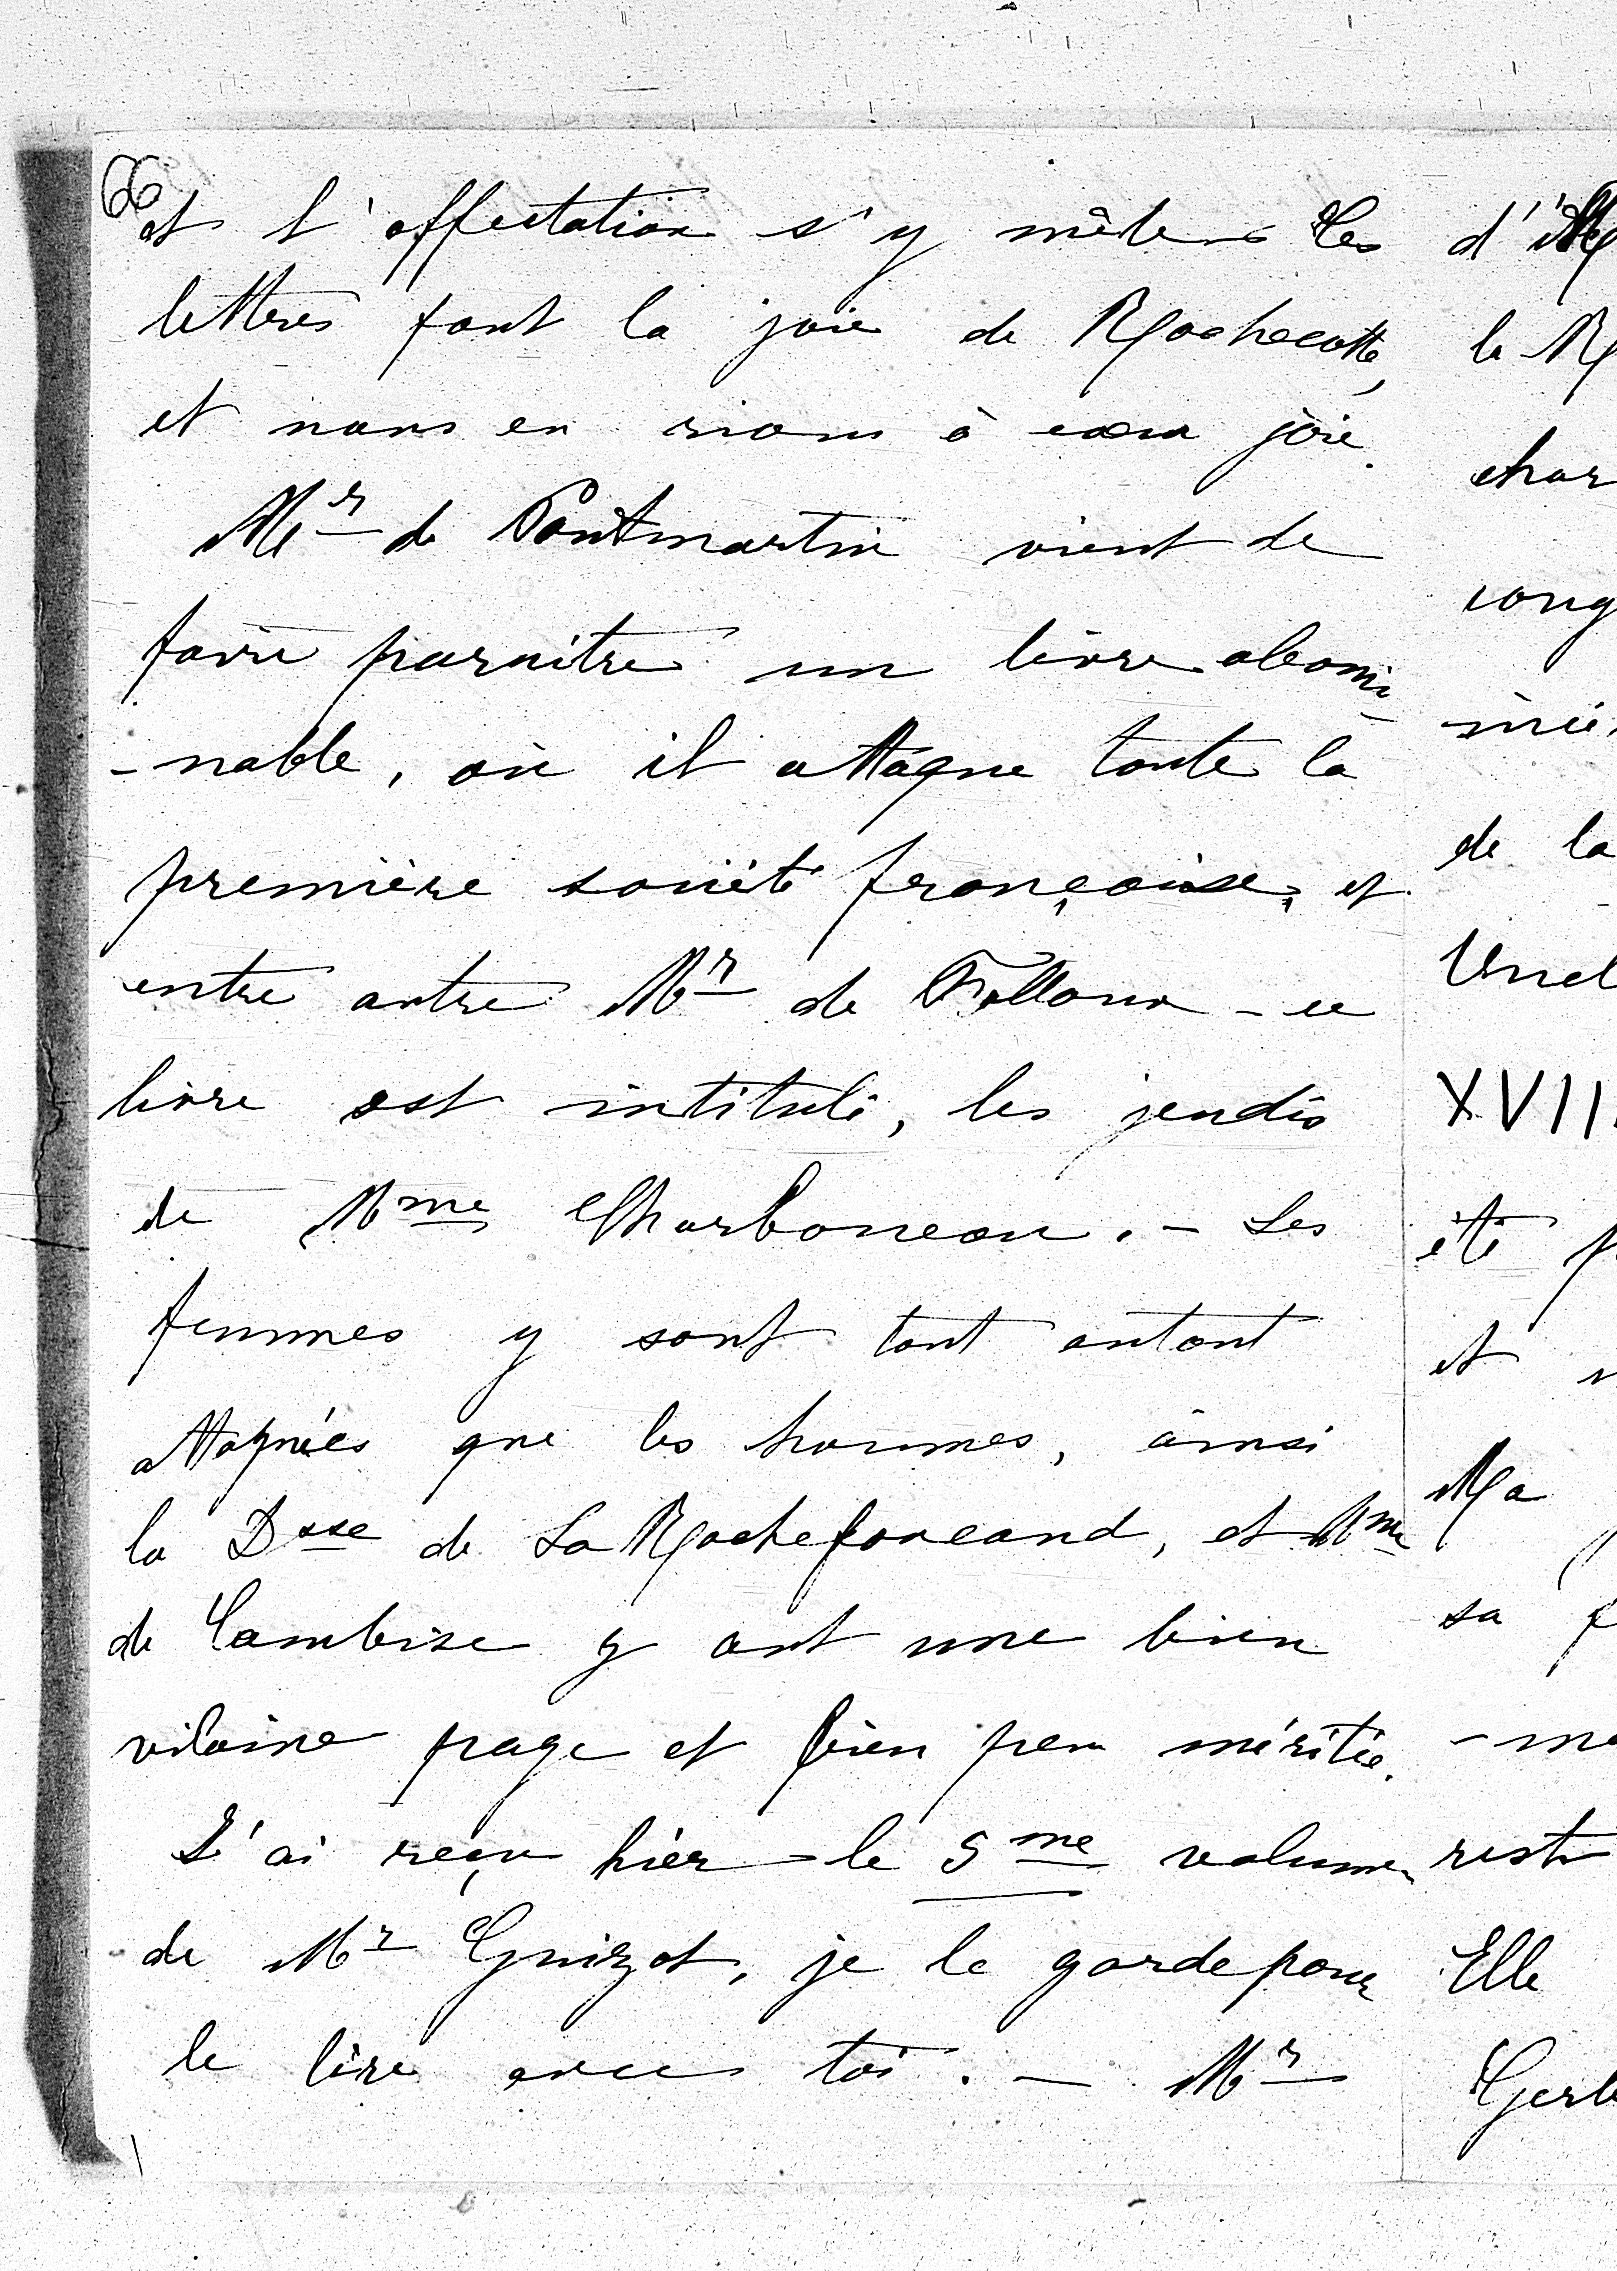 66
et l'affectation s'y mêlent les
lettres font la joie de Rochecotte,
et nous en rions à cœur joie.
Mr de Pontmartin vient de
faire paraître un livre abomi
-nable, où il attaque toute la
première société française, et
entre autre Mr de Falloux - ce
livre est intitulé, les jeudis
de Mme Charboneau. - Les
femmes y sont tout autant
attaquées que les hommes, ainsi
la Dsse de La Rochefoucaud, et Mme
de Cambise y ont une bien
vilaine page et bien peu méritée.
J'ai reçu hier le 5me volume
de Mr Guizot, je le garde pour
le lire avec toi. - Mr
le
de la
XVII
été
et
Ma
sa
Elle